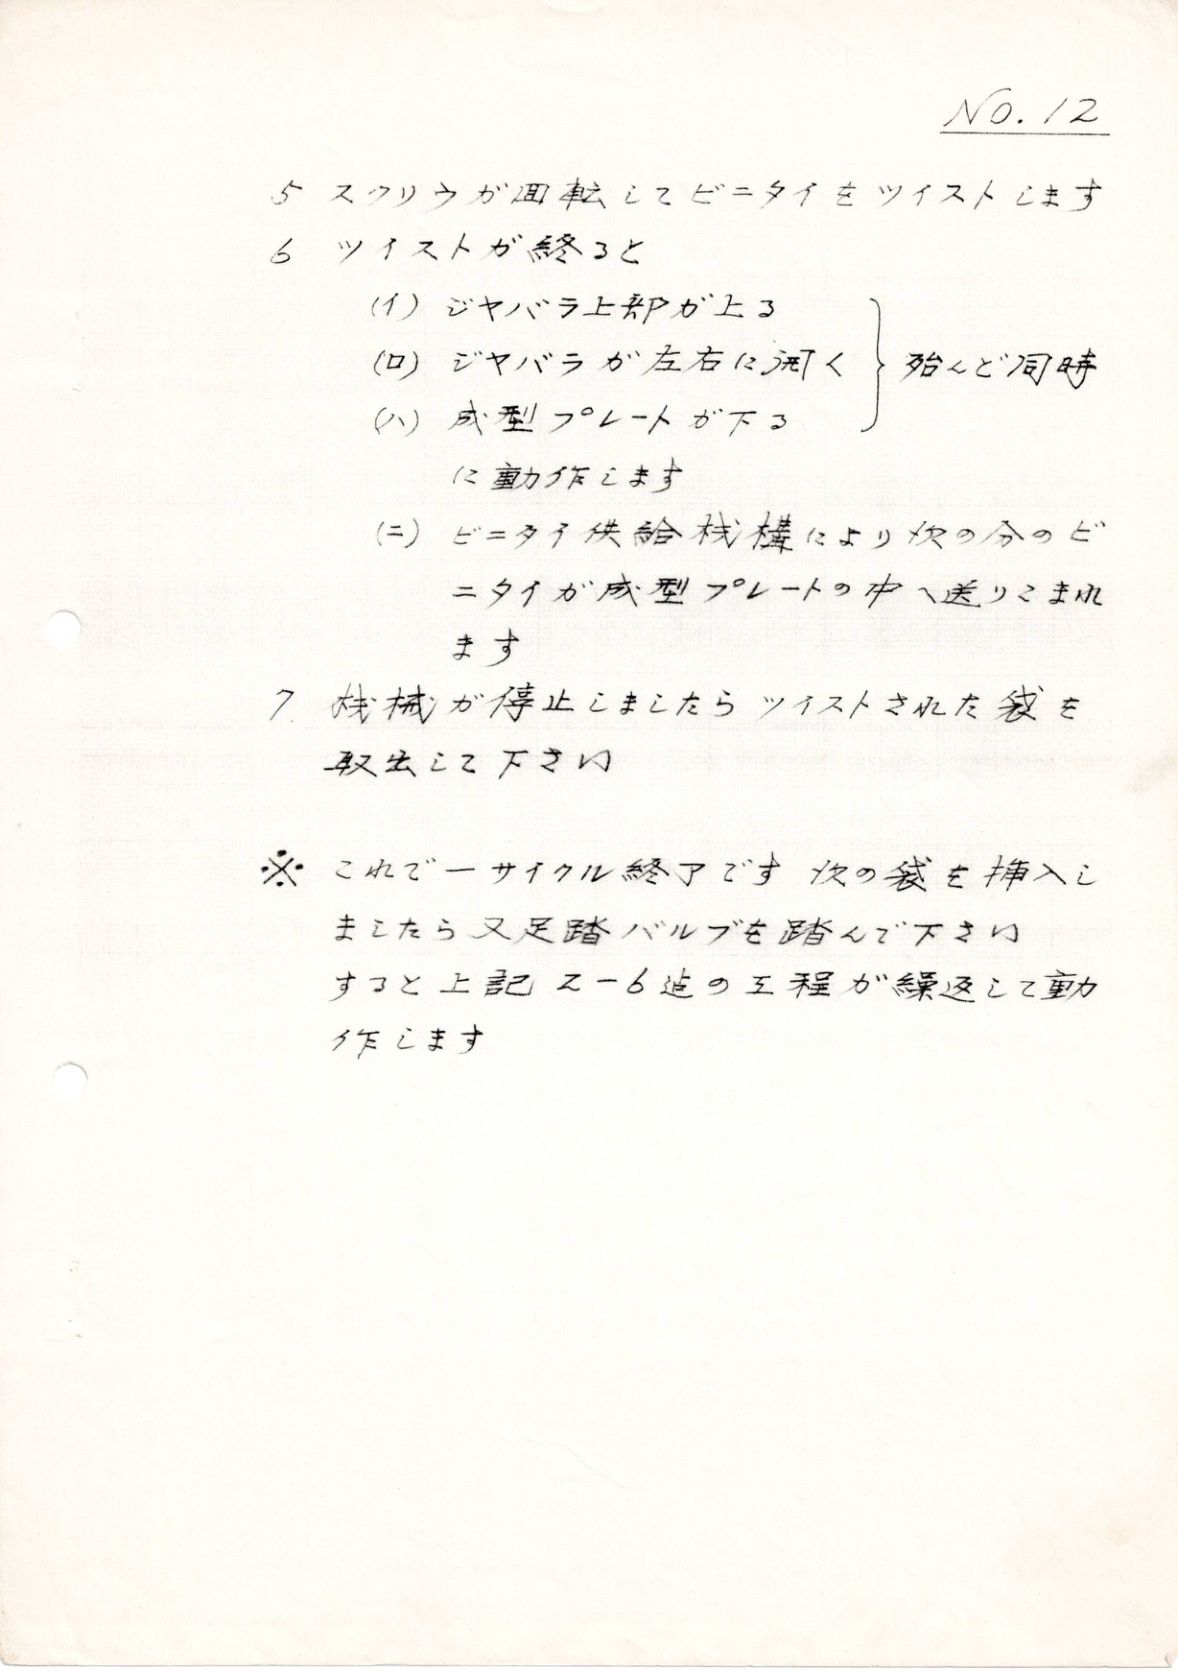 NO.12
5 スクリウが回転してビニタイをツイストします
6 ツイストが終ると
(イ) ジヤバラ上部が上る
(ロ) ジヤバラが左右に開く } 殆んど同時
(ハ) 成型プレートが下る
に動作します
(ニ) ビニタイ供給機構により次の分のビ
ニタイが成型プレートの中へ送りこまれ
ます
7 機械が停止しましたらツイストされた袋を
取出して下さい
※ これで一サイクル終了です 次の袋を挿入し
ましたら又足踏バルブを踏んで下さい
すると上記2-6迄の工程が繰返して動
作します